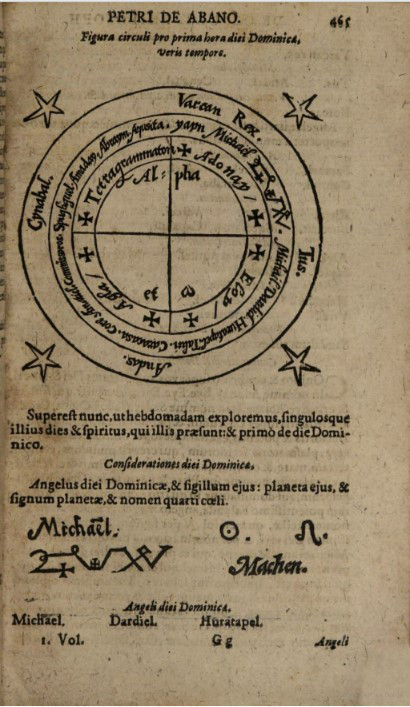 PETRI DE ABANO. 465
Figura circuli pro prima hora diei Dominicæ,
veris tempore.
Varcan Rex.
Tus.
Andas.
Cynabal.
yayn Michaël
Michaël Dardiel Huratapel
Tetragrammaton
Adonay
Eloy
Agla
Al- pha
ω
Superest nunc, ut hebdomadam exploremus, singulosque
illius dies & spiritus, qui illis præsunt: & primò de die Domi-
nico.
Considerationes diei Dominicæ.
Angelus diei Dominicæ, & sigillum ejus: planeta ejus, &
signum planetæ, & nomen quarti cœli.
Michaël. ☉. ♌.
Machen.
Angeli diei Dominicæ.
Michael. Dardiel. Huratapel.
1. Vol. Gg Angeli